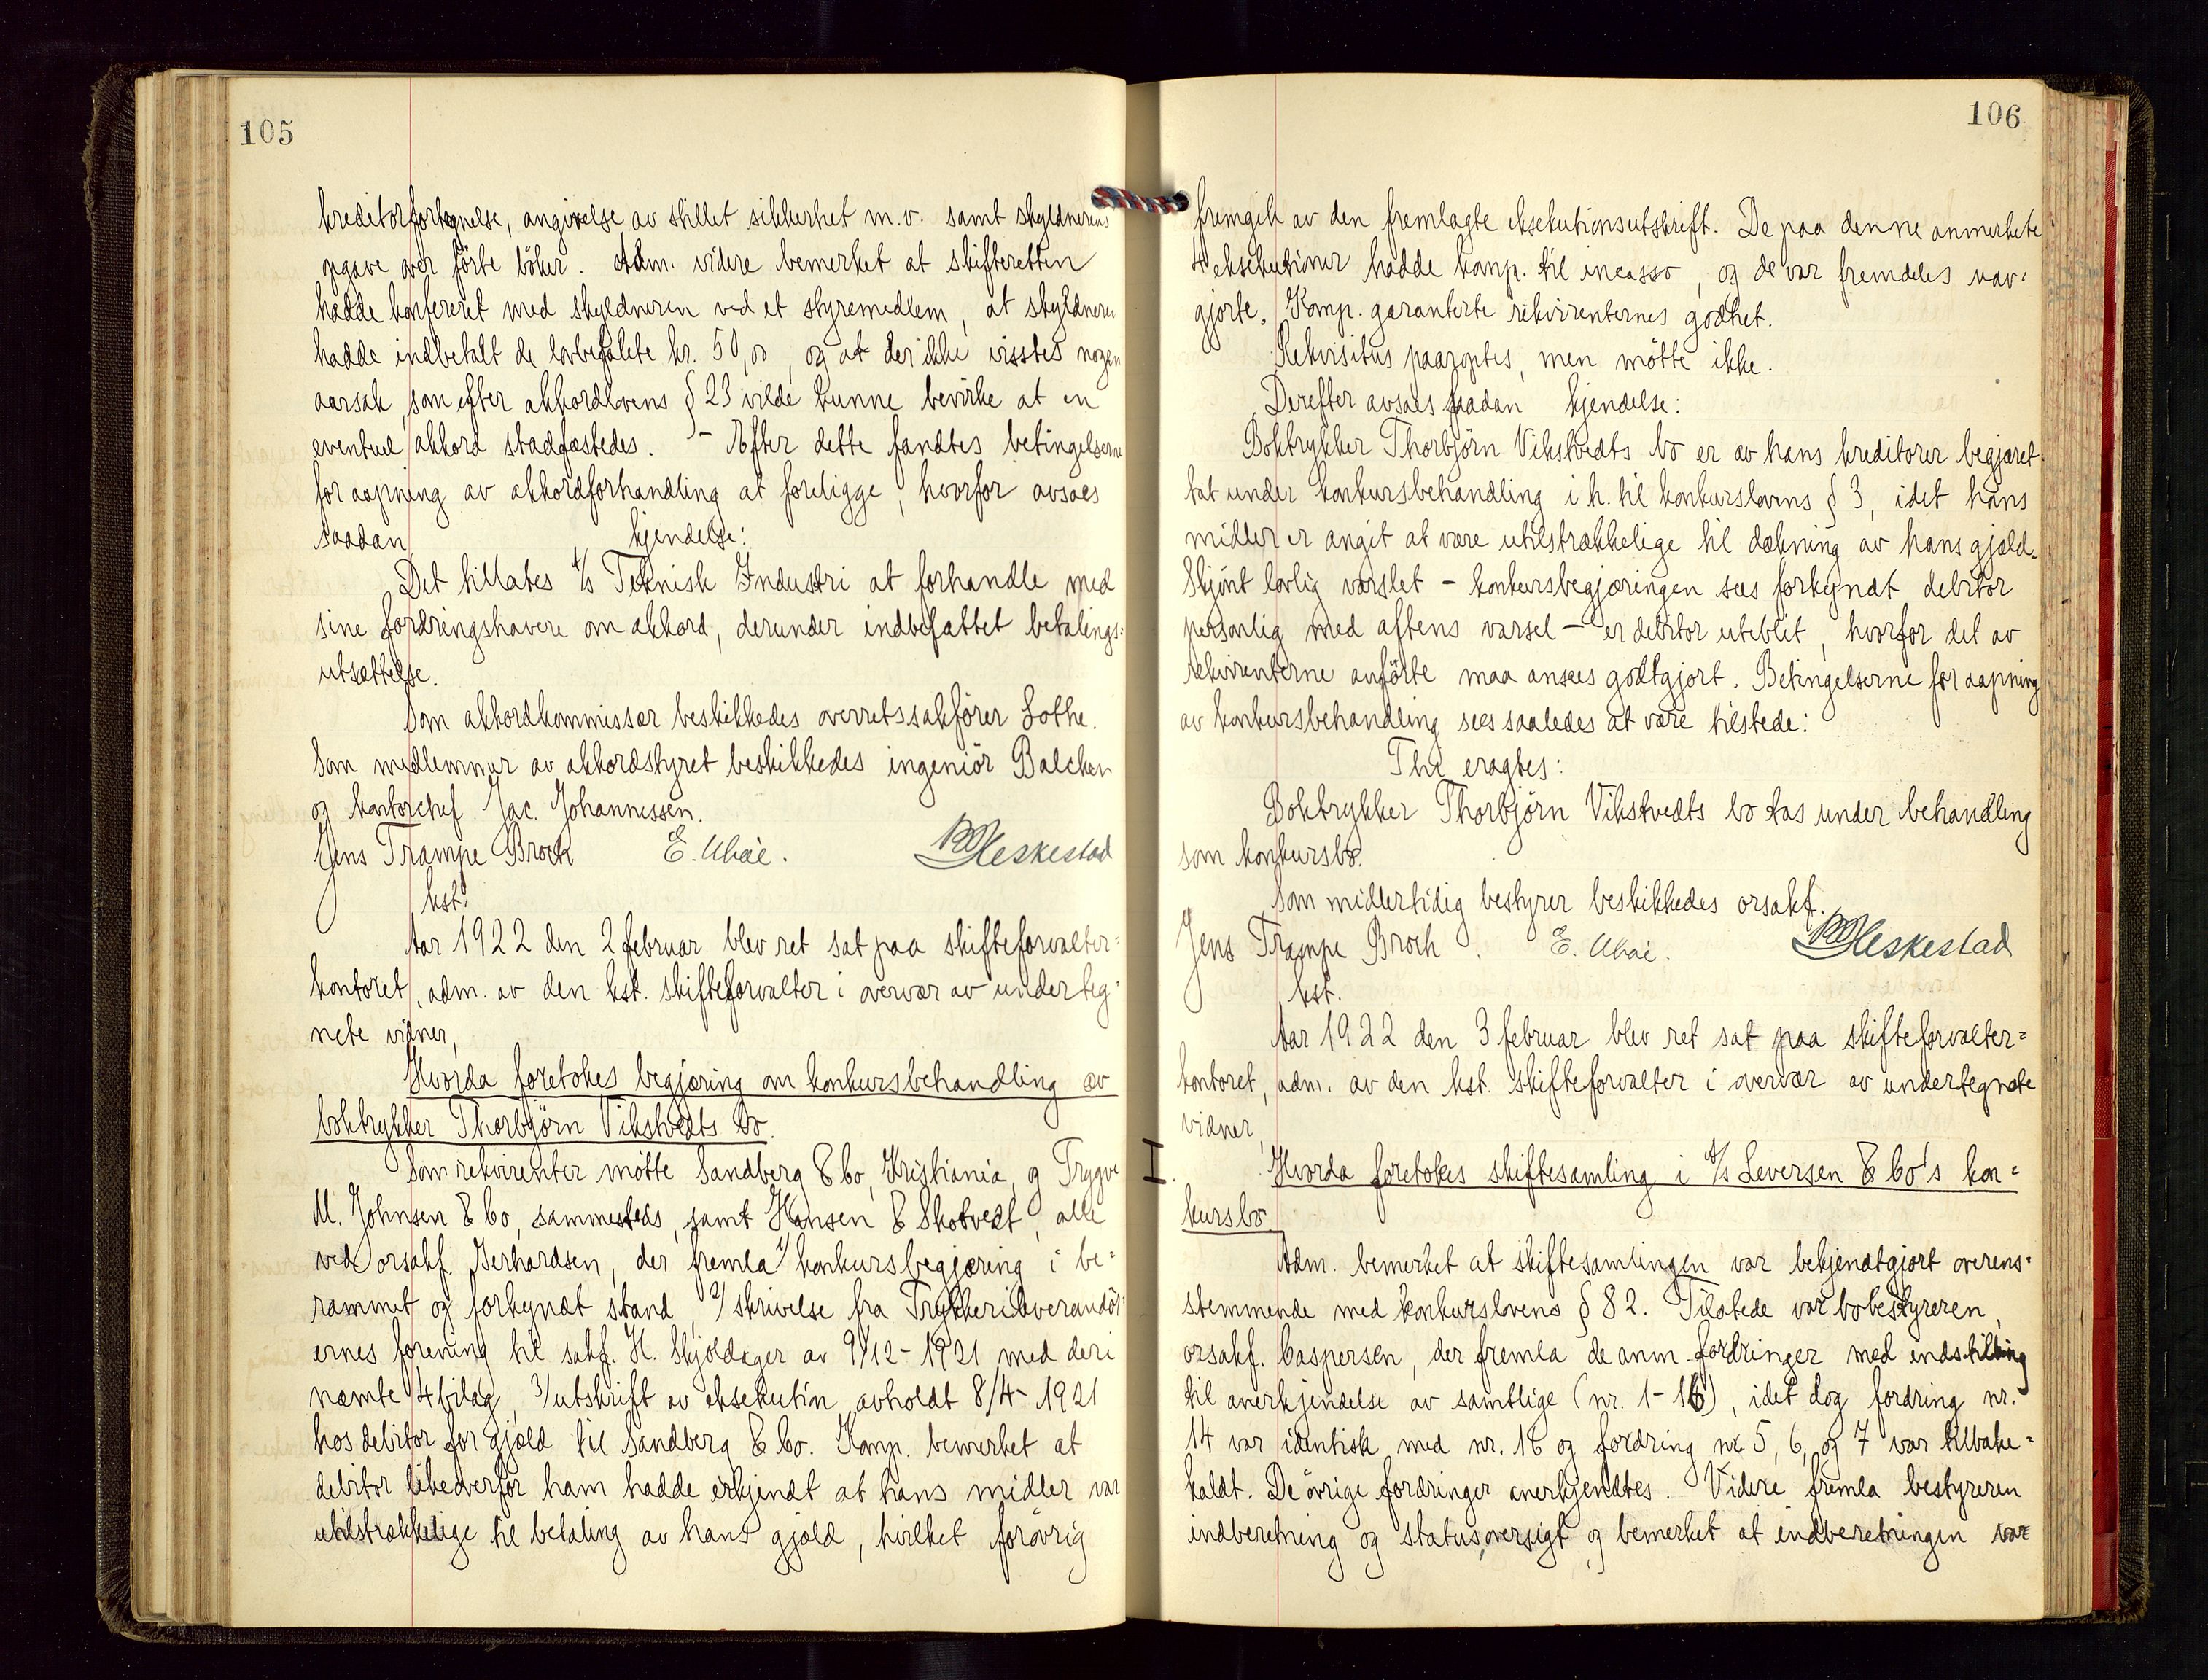 105
kreditorfortegnelse, angivelse av stillet sikkerhet m.v. samt skyldnerens
opgave over förte böker. Adm. videre bemerket at skifteretten
hadde konfereret med skyldneren ved et styremedlem, at skyldneren
hadde indbetalt de lovbefalete kr. 50,00, og at der ikke visstes nogen
aarsak, som efter akkordlovens § 23 vilde kunne bevirke at en
eventuel akkord stadfæstedes. - Efter dette fandtes betingelserne
for aapning av akkordforhandling at foreligge, hvorfor avsaes
saadan kjendelse:
Det tillates A/s Teknisk Industri at forhandle med
sine fordringshavere om akkord, derunder indbefattet betalings-
utsættelse.
Som akkordkommissær beskikkedes overretssakförer Lothe.
Som medlemmer av akkordstyret beskikkedes ingeniör Balchen
og kontorchef Jac. Johannessen.
Jens Trampe Broch E. Ubøe. Heskestad
kst.
Aar 1922 den 2 februar blev ret sat paa skifteforvalter=
kontoret, adm. av den kst. skifteforvalter i overvær av underteg=
nete vidner,
Hvorda foretokes begjæring om konkursbehandling av
boktrykker Thorbjörn Vikstvedts bo.
Som rekvirenter mötte Sandberg & Co, Kristiania, og Trygve
M. Johnsen & Co, sammesteds, samt Hansen & Skotvedt, alle
ved orsakf. Gerhardsen, der fremla 1/ konkursbegjæring i be=
rammet og forkyndt stand, 2/ skrivelse fra Trykkerileverandör=
ernes forening til sakf. H. Skjoldager av 9/12-1921 med deri
nævnte 4 bilag, 3/ utskrift av eksekution avholdt 8/4-1921
hos debitor for gjæld til Sandberg & Co. Komp. bemerket at
debitor likeoverfor ham hadde erkjendt at hans midler var
utilstrækkelige til betaling av hans gjæld, hvilket forövrig
106
fremgik av den fremlagte eksekutionsutskrift. De paa denne anmerkete
4 eksekutioner hadde komp. til incasso, og de var fremdeles uav=
gjorte. Komp. garanterte rekvirenternes godhet.
Rekvisitus paaroptes, men mötte ikke.
Derefter avsaes saadan kjendelse:
Boktrykker Thorbjörn Vikstvedts bo er av hans kreditorer begjæret
tat under konkursbehandling i h. til konkurslovens § 3, idet hans
midler er angit at være utilstrækkelige til dækning av hans gjæld.
Skjönt lovlig varslet - konkursbegjæringen sees forkyndt debitor
personlig med aftens varsel - er debitor uteblit, hvorfor det av
rekvirenterne anförte maa ansees godtgjort. Betingelserne for aapning
av konkursbehandling sees saaledes at være tilstede:
Thi eragtes:
Boktrykker Thorbjörn Vikstvedts bo tas under behandling
som konkursbo.
Som midlertidig bestyrer beskikkedes orsakf.
Jens Trampe Broch. E. Ubøe. Heskestad
kst.
Aar 1922 den 3 februar blev ret sat paa skifteforvalter=
kontoret, adm. av den kst. skifteforvalter i overvær av undertegnete
vidner,
I. Hvorda foretokes skiftesamling i A/s Seversen & Co's kon=
kursbo
Adm. bemerket at skiftesamlingen var bekjendtgjort overens=
stemmende med konkurslovens § 82. Tilstede var bobestyreren,
orsakf. Caspersen, der fremla de anm. fordringer med indstilling
til anerkjendelse av samtlige (nr. 1-16), idet dog fordring nr.
14 var identisk med nr. 16 og fordring nr 5, 6, og 7 var tilbake=
kaldt. De övrige fordringer anerkjendtes. Videre fremla bestyreren
indberetning og statusoversigt og bemerket at indberetningen var